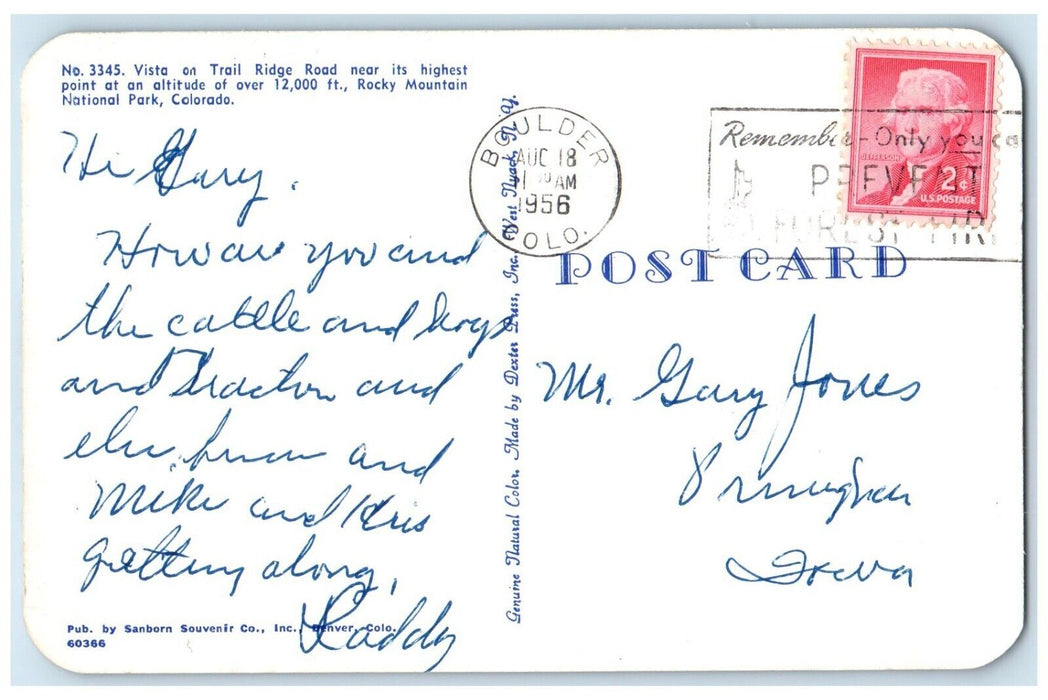 No. 3345. Vista on Trail Ridge Road near its highest
point at an altitude of over 12,000 ft., Rocky Mountain
National Park, Colorado.
Hi Gary.
How are you and
the cattle and hogs
and tractor and
and
Mike and Kris
getting along,
Pub. by Sanborn Souvenir Co., Inc., Denver, Colo.
60366
Genuine Natural Color. Made by Dexter Press, Inc., West Nyack, N. Y.
BOULDER
AUG 18
AM
1956
COLO.
Remember - Only you ca
PREVENT
FOREST FIR
JEFFERSON
2¢
U.S. POSTAGE
POST CARD
Mr. Gary Jones
Iowa